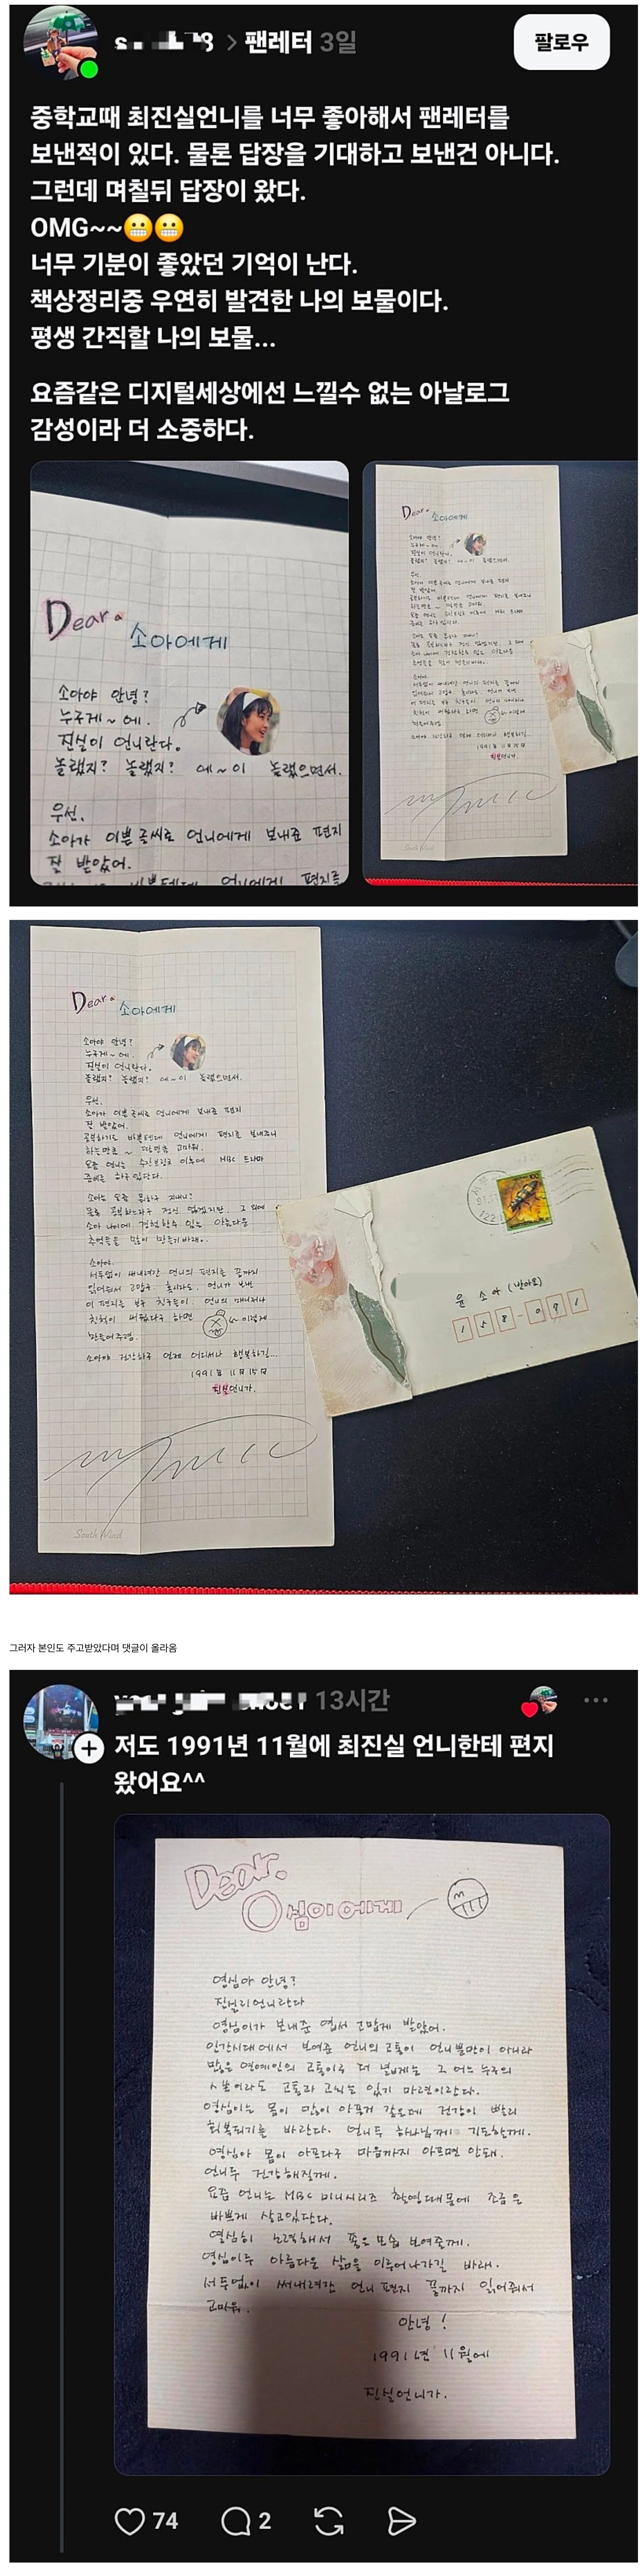 팬레터 3일
팔로우
중학교때 최진실언니를 너무 좋아해서 팬레터를
보낸적이 있다. 물론 답장을 기대하고 보낸건 아니다.
그런데 며칠뒤 답장이 왔다.
OMG~~😬😬
너무 기분이 좋았던 기억이 난다.
책상정리중 우연히 발견한 나의 보물이다.
평생 간직할 나의 보물...
요즘같은 디지털세상에선 느낄수 없는 아날로그
감성이라 더 소중하다.
Dear. 소아에게
소아야 안녕?
누구게~에.
진실이 언니란다.
놀랬지? 놀랬지? 에~이 놀랬으면서.
우선.
소아가 이쁜글씨로 언니에게 보내준 편지
잘 받았어.
Dear. 소아에게
소아야 안녕?
누구게~에.
진실이 언니란다.
놀랬지? 놀랬지? 에~이 놀랬으면서.
우선.
소아가 이쁜글씨로 언니에게 보내준 편지
잘 받았어.
Dear. 소아에게
소아야 안녕?
누구게~에.
진실이 언니란다.
놀랬지? 놀랬지? 에~이 놀랬으면서.
우선.
소아가 이쁜글씨로 언니에게 보내준 편지
잘 받았어.
공부하기도 바쁠텐데 언니에게 편지를 보내주니
하늘만큼~ 땅만큼 고마워.
요즘 언니는 이후에 MBC 드라마
준비를 하구 있단다.
소아는 요즘 뭐하구 지내니?
물론 공부하느라구 정신 없겠지만. 그 외에
소아 나이에 경험할수 있는 아름다운
추억들을 많이 만들기 바래.
소아야.
서두없이 써내려간 언니의 편지를 끝까지
읽어줘서 고맙구. 혹시라도. 언니가 보낸
이 편지를 보구 친구들이. 언니의 매니저나
친척이 써줬다구 하면 이렇게
만들어주렴.
소아야 건강하구 언제 어디서나 행복하길...
1991년 11월 15日
진실언니가.
South Wind
윤 소 아 (받아요)
158-091
그러자 본인도 주고받았다며 댓글이 올라옴
13시간
저도 1991년 11월에 최진실 언니한테 편지
왔어요^^
Dear.
영심이에게
영심아 안녕?
진실리언니란다
영심이가 보내준 엽서 고맙게 받았어.
인간시대에서 보여준 언니의 고통이 언니뿐만이 아니라
많은 연예인의 고통이구 더 넓게는 그 어느 누구의
고통과 고뇌는 있기 마련이란다.
영심이는 몸이 많이 아픈거 같은데 건강이 빨리
회복되기를 바란다. 언니두 하나님께 기도할께.
영심아 몸이 아프다구 마음까지 아프면 안돼.
언니두 건강해질께.
요즘 언니는 MBC 미니시리즈 촬영때문에 조금은
바쁘게 살고있단다.
열심히 노력해서 좋은모습 보여줄께.
영심이두 아름다운 삶을 이루어나가길 바래.
서두없이 써내려간 언니 편지 끝까지 읽어줘서
고마워.
안녕!
1991년 11월에
진실언니가.
74
2